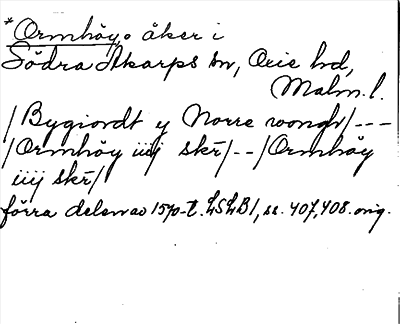 *Ormhöy, åker i
Södra Åkarps sn, Oxie hd,
Malm. l.
/Bygiordt y Norre wongh/---
/Ormhöy iiij skr̃/--/Ormhöy
iiij skr̃/
förra delen av 1570-t. LSLB1, ss. 407, 408. orig.